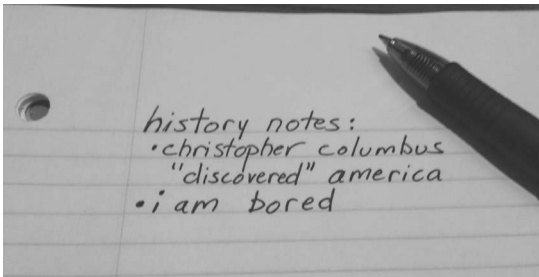 history notes:
•christopher columbus
"discovered" america
•i am bored